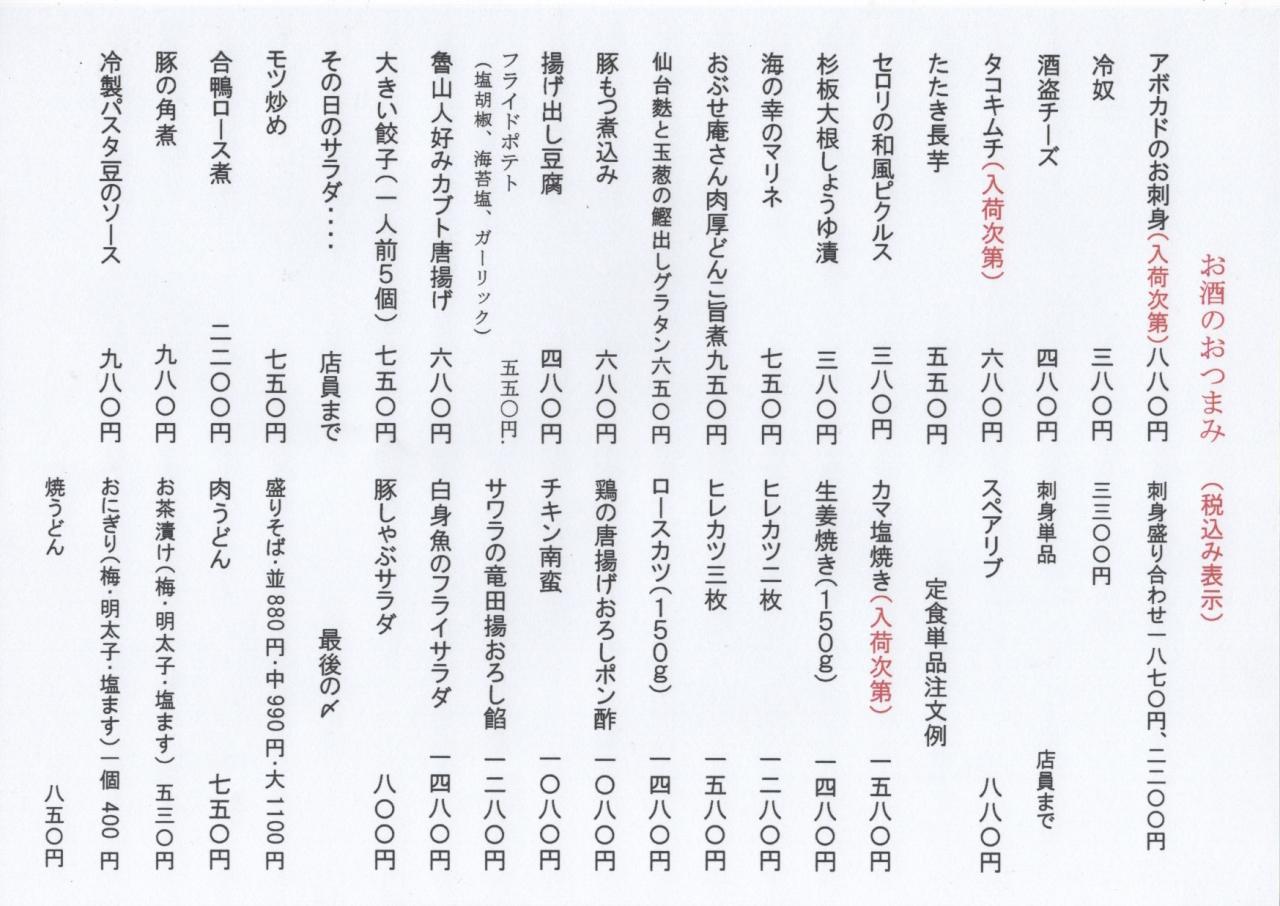 お酒のおつまみ (税込み表示)
アボカドのお刺身(入荷次第)八八〇円
冷奴 三八〇円
酒盗チーズ 四八〇円
タコキムチ(入荷次第) 六八〇円
たたき長芋 五五〇円
セロリの和風ピクルス 三八〇円
杉板大根しょうゆ漬 三八〇円
海の幸のマリネ 七五〇円
おぶせ庵さん肉厚どんこ旨煮九五〇円
仙台麩と玉葱の鰹出しグラタン六五〇円
豚もつ煮込み 六八〇円
揚げ出し豆腐 四八〇円
フライドポテト 五五〇円.
(塩胡椒、海苔塩、ガーリック)
魯山人好みカブト唐揚げ 六八〇円
大きい餃子(一人前5個) 七五〇円
その日のサラダ・・・・ 店員まで
モツ炒め 七五〇円
合鴨ロース煮 二二〇〇円
豚の角煮 九八〇円
冷製パスタ豆のソース 九八〇円
刺身盛り合わせ一八七〇円、二二〇〇円
三三〇〇円
刺身単品 店員まで
スペアリブ 八八〇円
定食単品注文例
カマ塩焼き(入荷次第) 一五八〇円
生姜焼き(150g) 一四八〇円
ヒレカツ二枚 一二八〇円
ヒレカツ三枚 一五八〇円
ロースカツ(150g) 一四八〇円
鶏の唐揚げおろしポン酢 一〇八〇円
チキン南蛮 一〇八〇円
サワラの竜田揚おろし餡 一二八〇円
白身魚のフライサラダ 一四八〇円
豚しゃぶサラダ 八〇〇円
最後の〆
盛りそば・並880円・中990円・大1100円
肉うどん 七五〇円
お茶漬け(梅・明太子・塩ます) 五三〇円
おにぎり(梅・明太子・塩ます)一個 400円
焼うどん 八五〇円